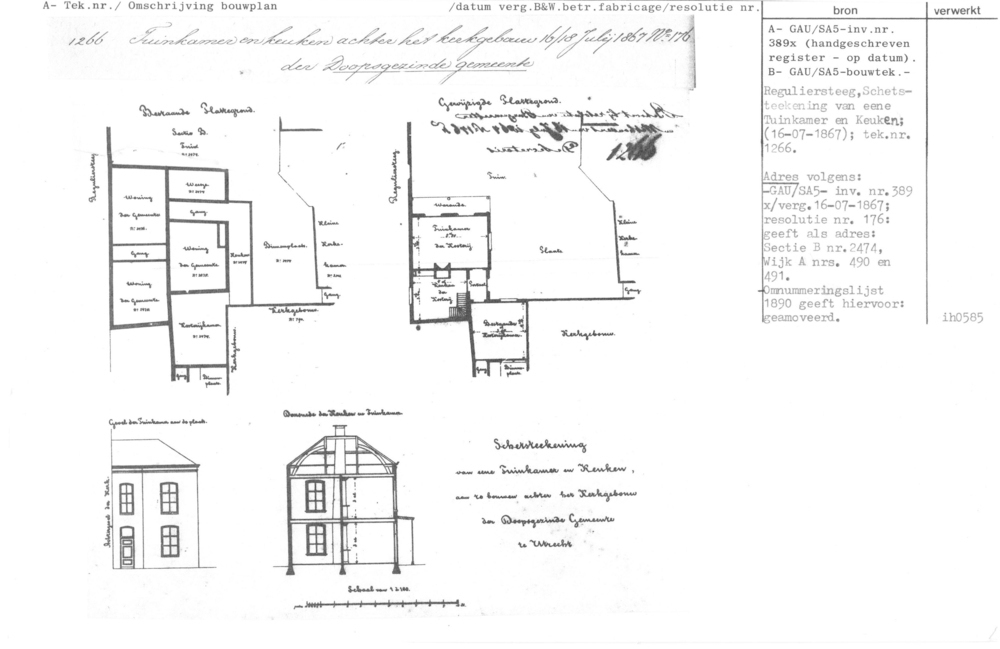 A- Tek.nr./ Omschrijving bouwplan /datum verg.B&W.betr.fabricage/resolutie nr.
bron
verwerkt
1266 Tuinkamer en keuken achter het kerkgebouw 16/18 Julij 1867 No. 176
der Doopsgezinde gemeente
A- GAU/SA5-inv.nr.
389x (handgeschreven
register - op datum).
B- GAU/SA5-bouwtek.-
Reguliersteeg,Schets-
teekening van eene
Tuinkamer en Keuken;
(16-07-1867); tek.nr.
1266.
Adres volgens:
-GAU/SA5- inv. nr.389
x/verg.16-07-1867;
resolutie nr. 176:
geeft als adres:
Sectie B nr.2474,
Wijk A nrs. 490 en
491.
Omnummeringslijst
1890 geeft hiervoor:
geamoveerd.
1h0585
Bestaande Plattegrond.
Sectie B.
Tuin
Reguliersteeg
Woning
der Gemeente
Gang
Woning
der Gemeente
Gang
Woning
der Gemeente
Keuken
Kosterijkamer
Kerkgebouw
Kerkgebouw
Kleine
Kerke-
kamer
Gang
Gang
Gewijzigde Plattegrond.
1266
Reguliersteeg
Tuin
Waranda
Tuinkamer
der Kosterij
Keuken
der
Kosterij
Plaats
Kleine
Kerke
kamer
Gang
Bestaande
Kosterijkamer
Kerkgebouw
Gang
Gevel der Tuinkamer aan de plaats.
Doorsnede der Keuken en Tuinkamer
Schetsteekening
van eene Tuinkamer en Keuken,
aan te bouwen achter het Kerkgebouw
der Doopsgezinde Gemeente
te Utrecht
Schaal van 1 à 100.